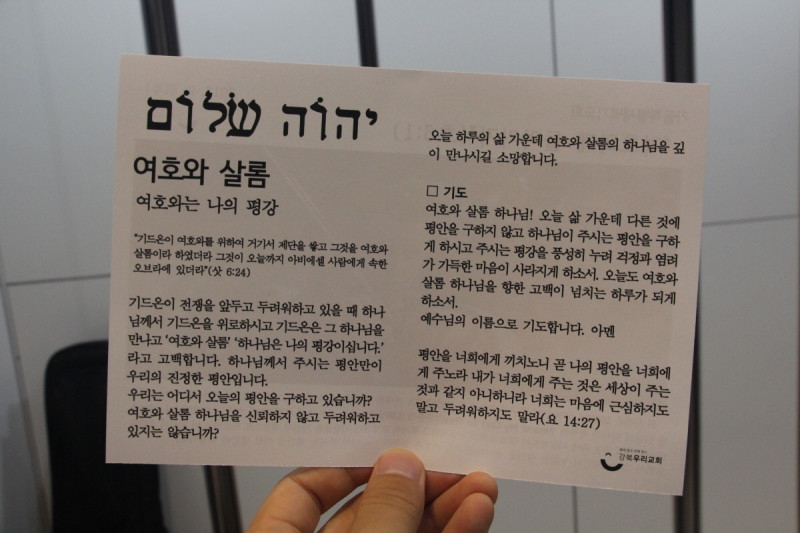 יהוה שלום
여호와 살롬
여호와는 나의 평강
"기드온이 여호와를 위하여 거기서 제단을 쌓고 그것을 여호와
살롬이라 하였더라 그것이 오늘까지 아비에셀 사람에게 속한
오브라에 있더라"(삿 6:24)
기드온이 전쟁을 앞두고 두려워하고 있을 때 하나
님께서 기드온을 위로하시고 기드온은 그 하나님을
만나고 '여호와 살롬' '하나님은 나의 평강이십니다.'
라고 고백합니다. 하나님께서 주시는 평안만이
우리의 진정한 평안입니다.
우리는 어디서 오늘의 평안을 구하고 있습니까?
여호와 살롬 하나님을 신뢰하지 않고 두려워하고
있지는 않습니까?
오늘 하루의 삶 가운데 여호와 살롬의 하나님을 깊
이 만나시길 소망합니다.
□ 기도
여호와 살롬 하나님! 오늘 삶 가운데 다른 것에
평안을 구하지 않고 하나님이 주시는 평안을 구하
게 하시고 주시는 평강을 풍성히 누려 걱정과 염려
가 가득한 마음이 사라지게 하소서. 오늘도 여호와
살롬 하나님을 향한 고백이 넘치는 하루가 되게
하소서.
예수님의 이름으로 기도합니다. 아멘
평안을 너희에게 끼치노니 곧 나의 평안을 너희에
게 주노라 내가 너희에게 주는 것은 세상이 주는
것과 같지 아니하니라 너희는 마음에 근심하지도
말고 두려워하지도 말라(요 14:27)
강북우리교회